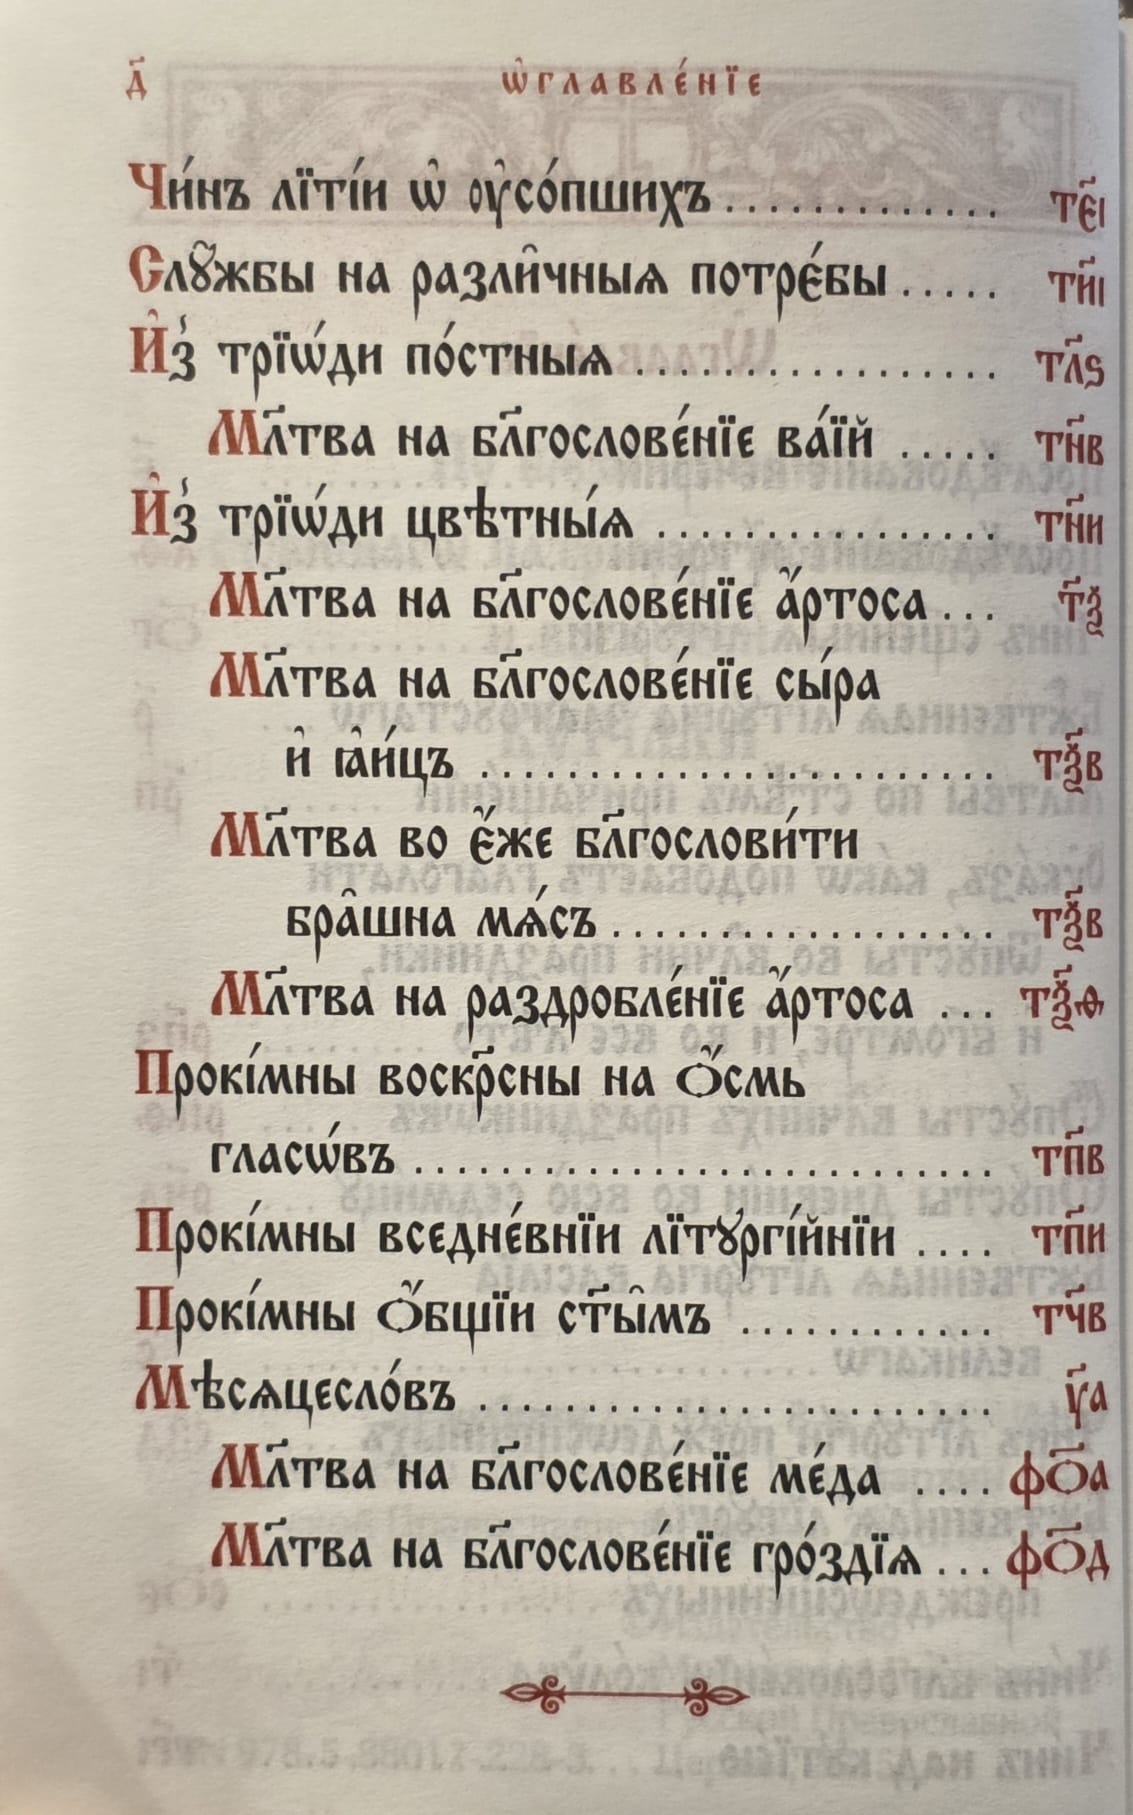 д҃ ѡ҆главле́нїе
Чи́нъ лїті́и ѡ҆ ᲂу҆со́пшихъ ............. тє҃і
Слꙋ́жбы на разли̑чныѧ потрє́бы ..... ти҃і
И҆з̾ трїѡ́ди по́стныѧ ................. тл҃ѕ
Мл҃тва на бл҃гослове́нїе ва́їй ..... тн҃в
И҆з̾ трїѡ́ди цвѣтны́ѧ ................ тн҃и
Мл҃тва на бл҃гослове́нїе а҆́ртоса ... т҃ѯ
Мл҃тва на бл҃гослове́нїе сы́ра
и҆ ꙗ҆и́цъ ........................ тѯ҃в
Мл҃тва во є҆́же бл҃гослови́ти
бра̑шна мѧ́съ .................. тѯ҃в
Мл҃тва на раздробле́нїе а҆́ртоса ... тѯ҃ѳ
Прокі́мны воскр҃сны на ѻ҆́смь
гласѡ́въ ........................... тп҃в
Прокі́мны вседне́внїи лїтꙋргі́йнїи .... тп҃и
Прокі́мны ѻ҆́бщїи ст҃ы̑мъ ............ тч҃в
Мѣсѧцесло́въ ........................ ѵ҃а
Мл҃тва на бл҃гослове́нїе ме́да .... фѻ҃а
Мл҃тва на бл҃гослове́нїе гро́здїѧ ... фѻ҃д